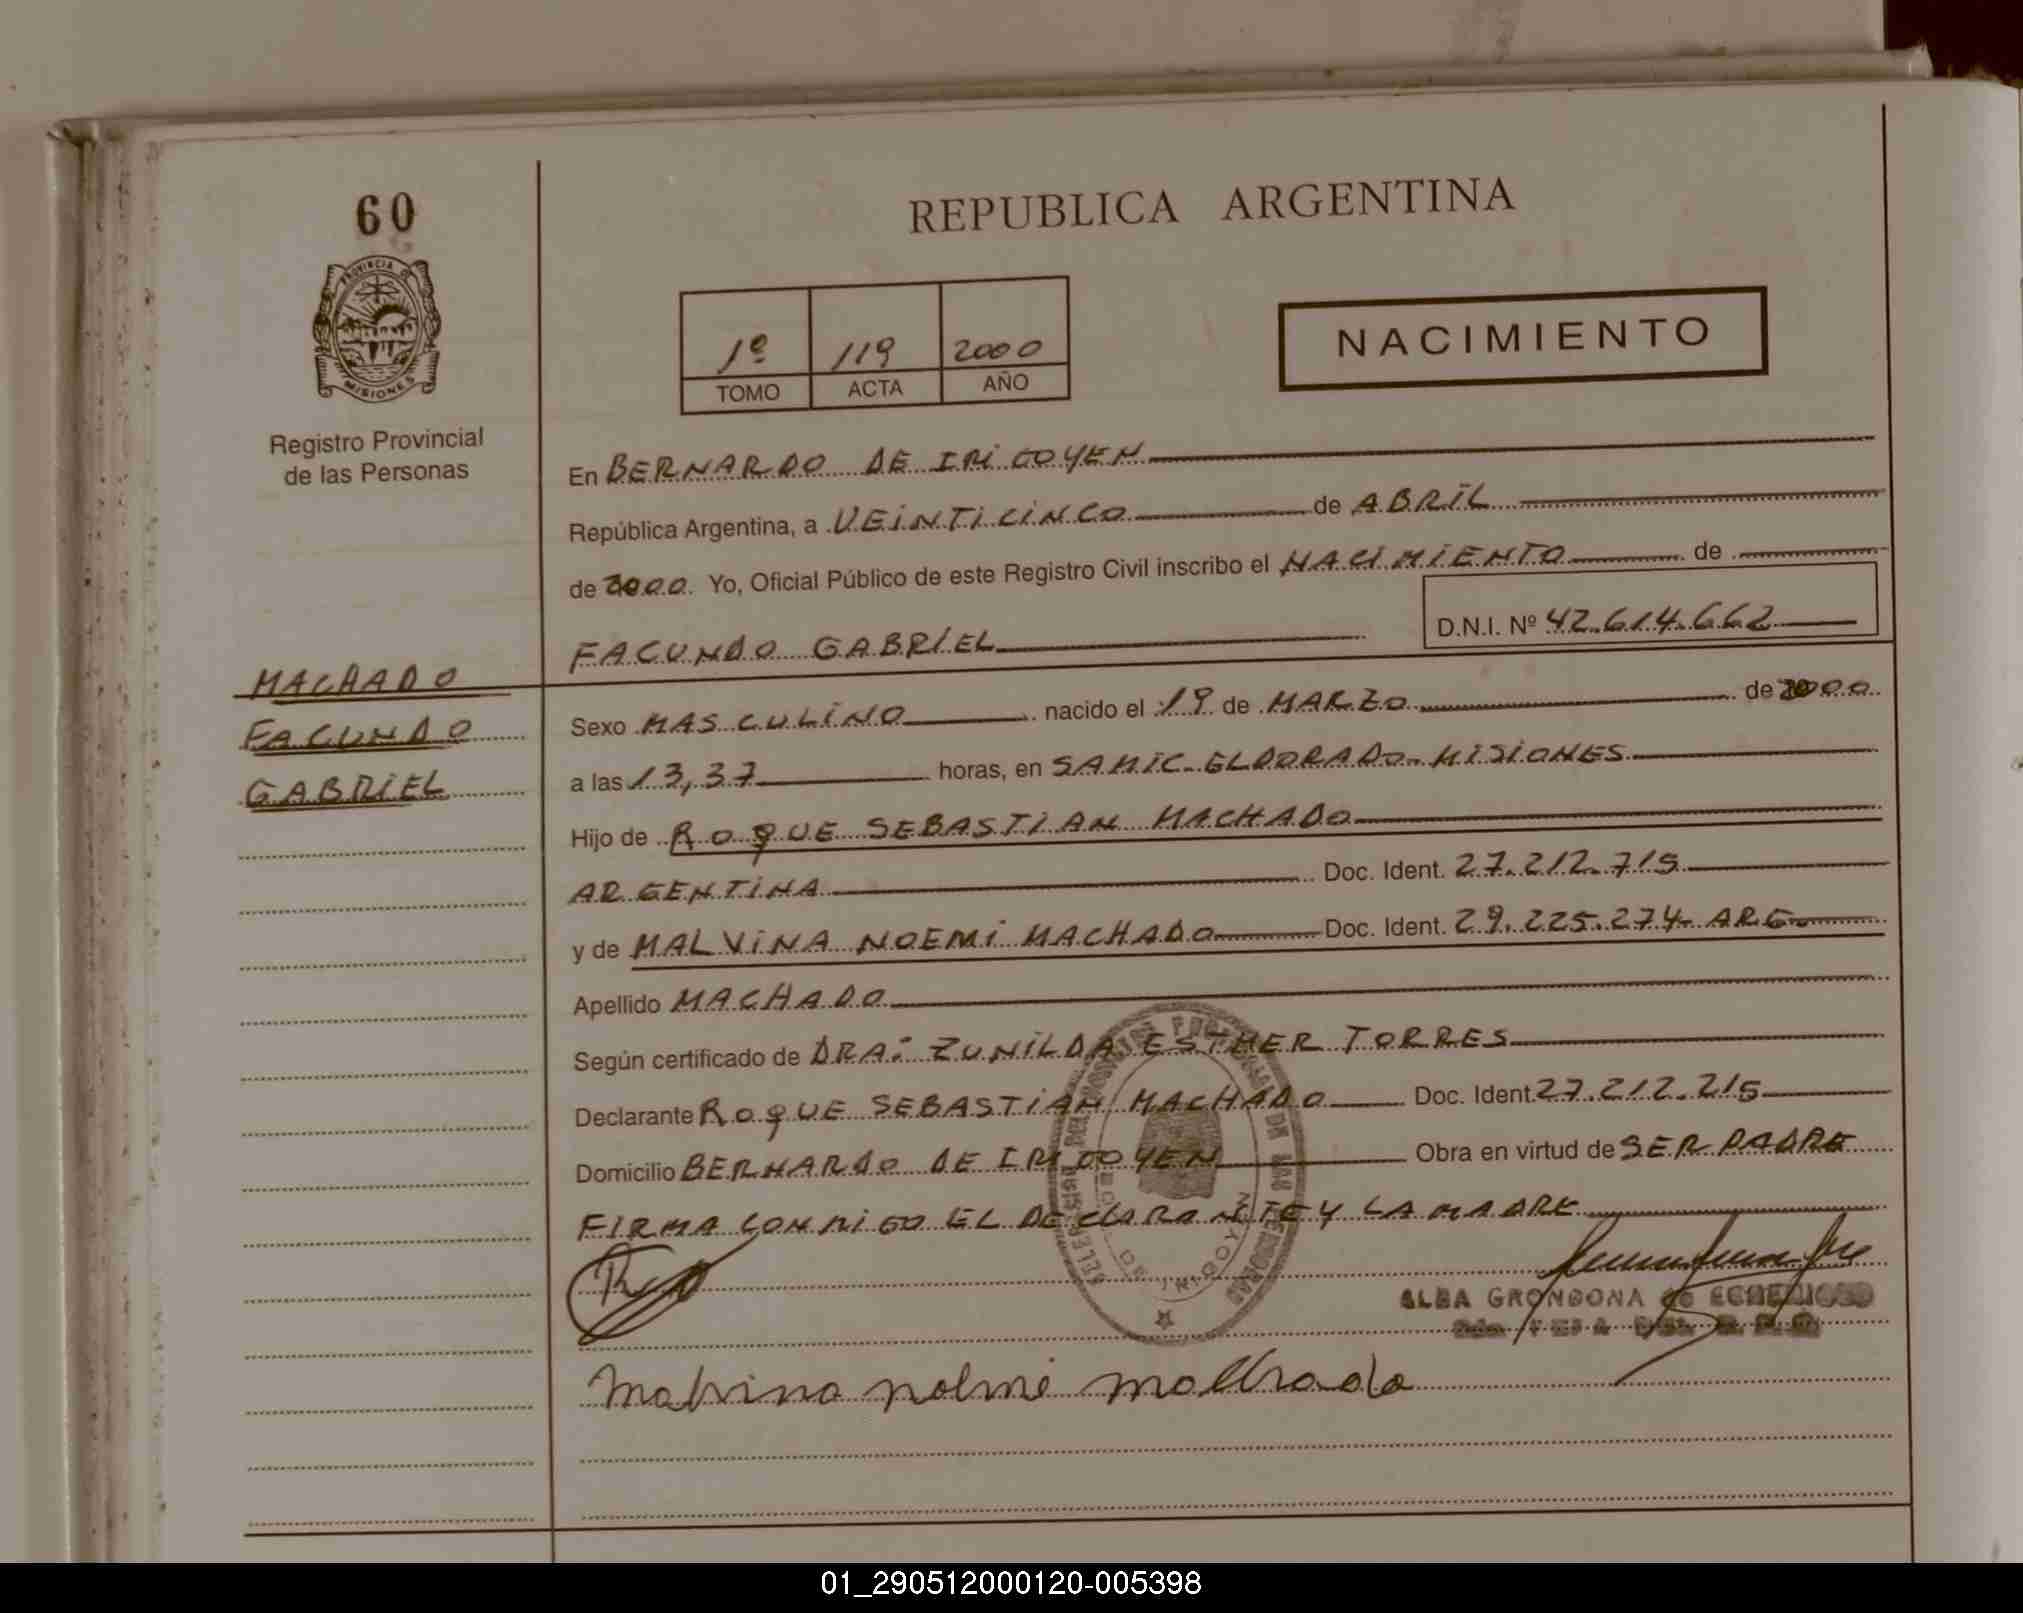 60
REPUBLICA ARGENTINA
PROVINCIA DE
MISIONES
Registro Provincial
de las Personas
1º 119 2000
TOMO ACTA AÑO
NACIMIENTO
En BERNARDO DE IRIGOYEN
República Argentina, a VEINTICINCO de ABRIL
de 2000. Yo, Oficial Público de este Registro Civil inscribo el NACIMIENTO de
D.N.I. Nº 42.614.662
FACUNDO GABRIEL
MACHADO
FACUNDO
GABRIEL
Sexo MASCULINO nacido el 19 de MARZO de 2000
a las 13,37 horas, en SAMIC-ELDORADO-MISIONES
Hijo de ROQUE SEBASTIAN MACHADO
ARGENTINA Doc. Ident. 27.212.715
y de MALVINA NOEMI MACHADO Doc. Ident. 29.225.274-ARG.
Apellido MACHADO
Según certificado de DRA: ZUNILDA ESTHER TORRES
Declarante ROQUE SEBASTIAN MACHADO Doc. Ident. 27.212.215
Domicilio BERNARDO DE IRIGOYEN Obra en virtud de SER PADRE
FIRMA CONMIGO EL DECLARANTE Y LA MADRE
ALBA GRONDONA de
Malvina nolmi machado
01_290512000120-005398